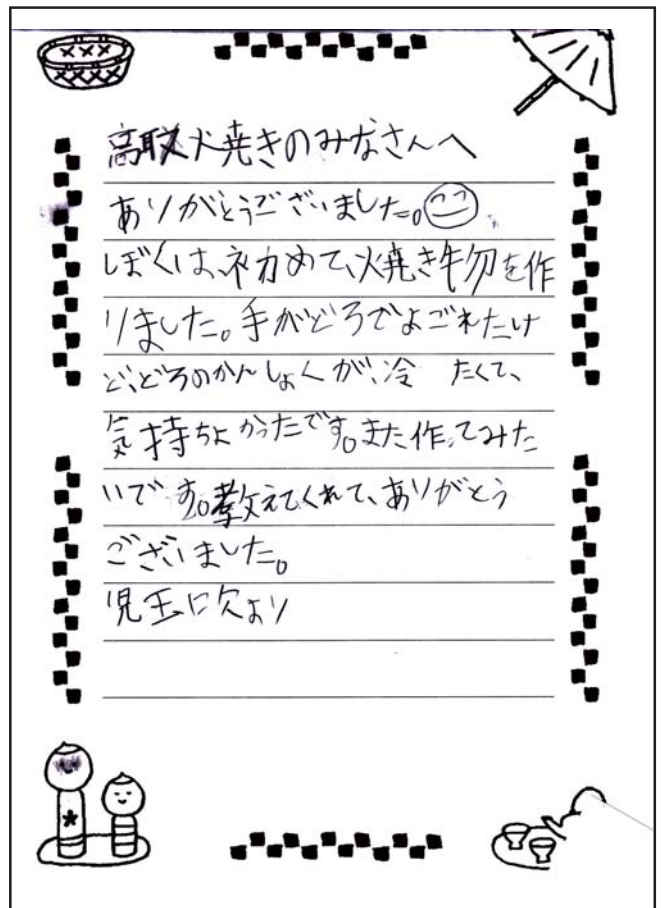 高取火焼きのみなさんへ
ありがとうございました。
ぼくは、初めて、火焼き物を作
りました。手がどろでよごれたけ
ど、どろのかんしょくが、冷たくて、
気持ちよかったです。また作ってみた
いです。教えてくれて、ありがとう
ございました。
児玉仁欠より